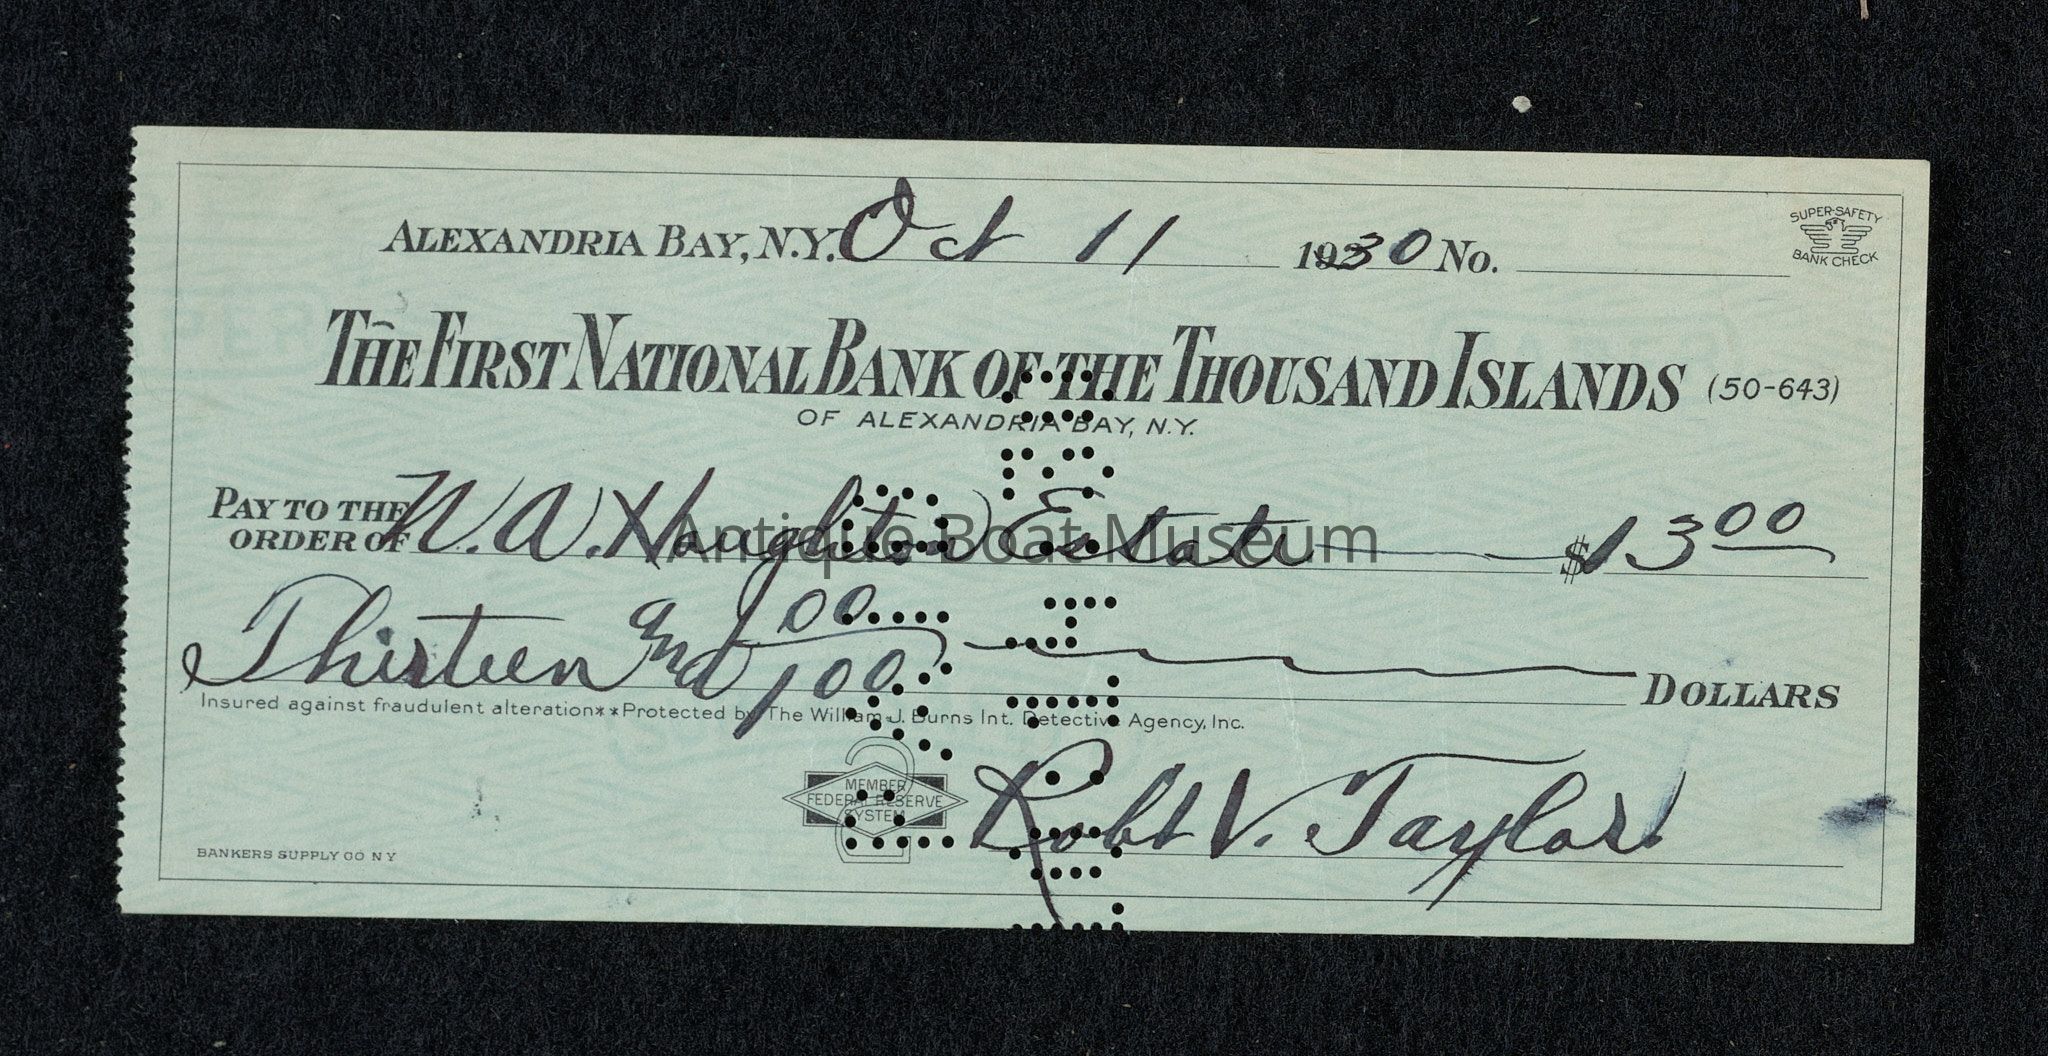 ALEXANDRIA BAY, N.Y. Oct 11 1930 No.
SUPER-SAFETY
BANK CHECK
THE FIRST NATIONAL BANK OF THE THOUSAND ISLANDS (50-643)
OF ALEXANDRIA BAY, N.Y.
PAY TO THE
ORDER OF W. A. Haughton Estate $13 00
Antique Boat Museum
Thirteen and 00/100 DOLLARS
Insured against fraudulent alteration**Protected by The William J. Burns Int. Detective Agency, Inc.
MEMBER
FEDERAL RESERVE
SYSTEM
Robt V. Taylor
BANKERS SUPPLY CO N Y